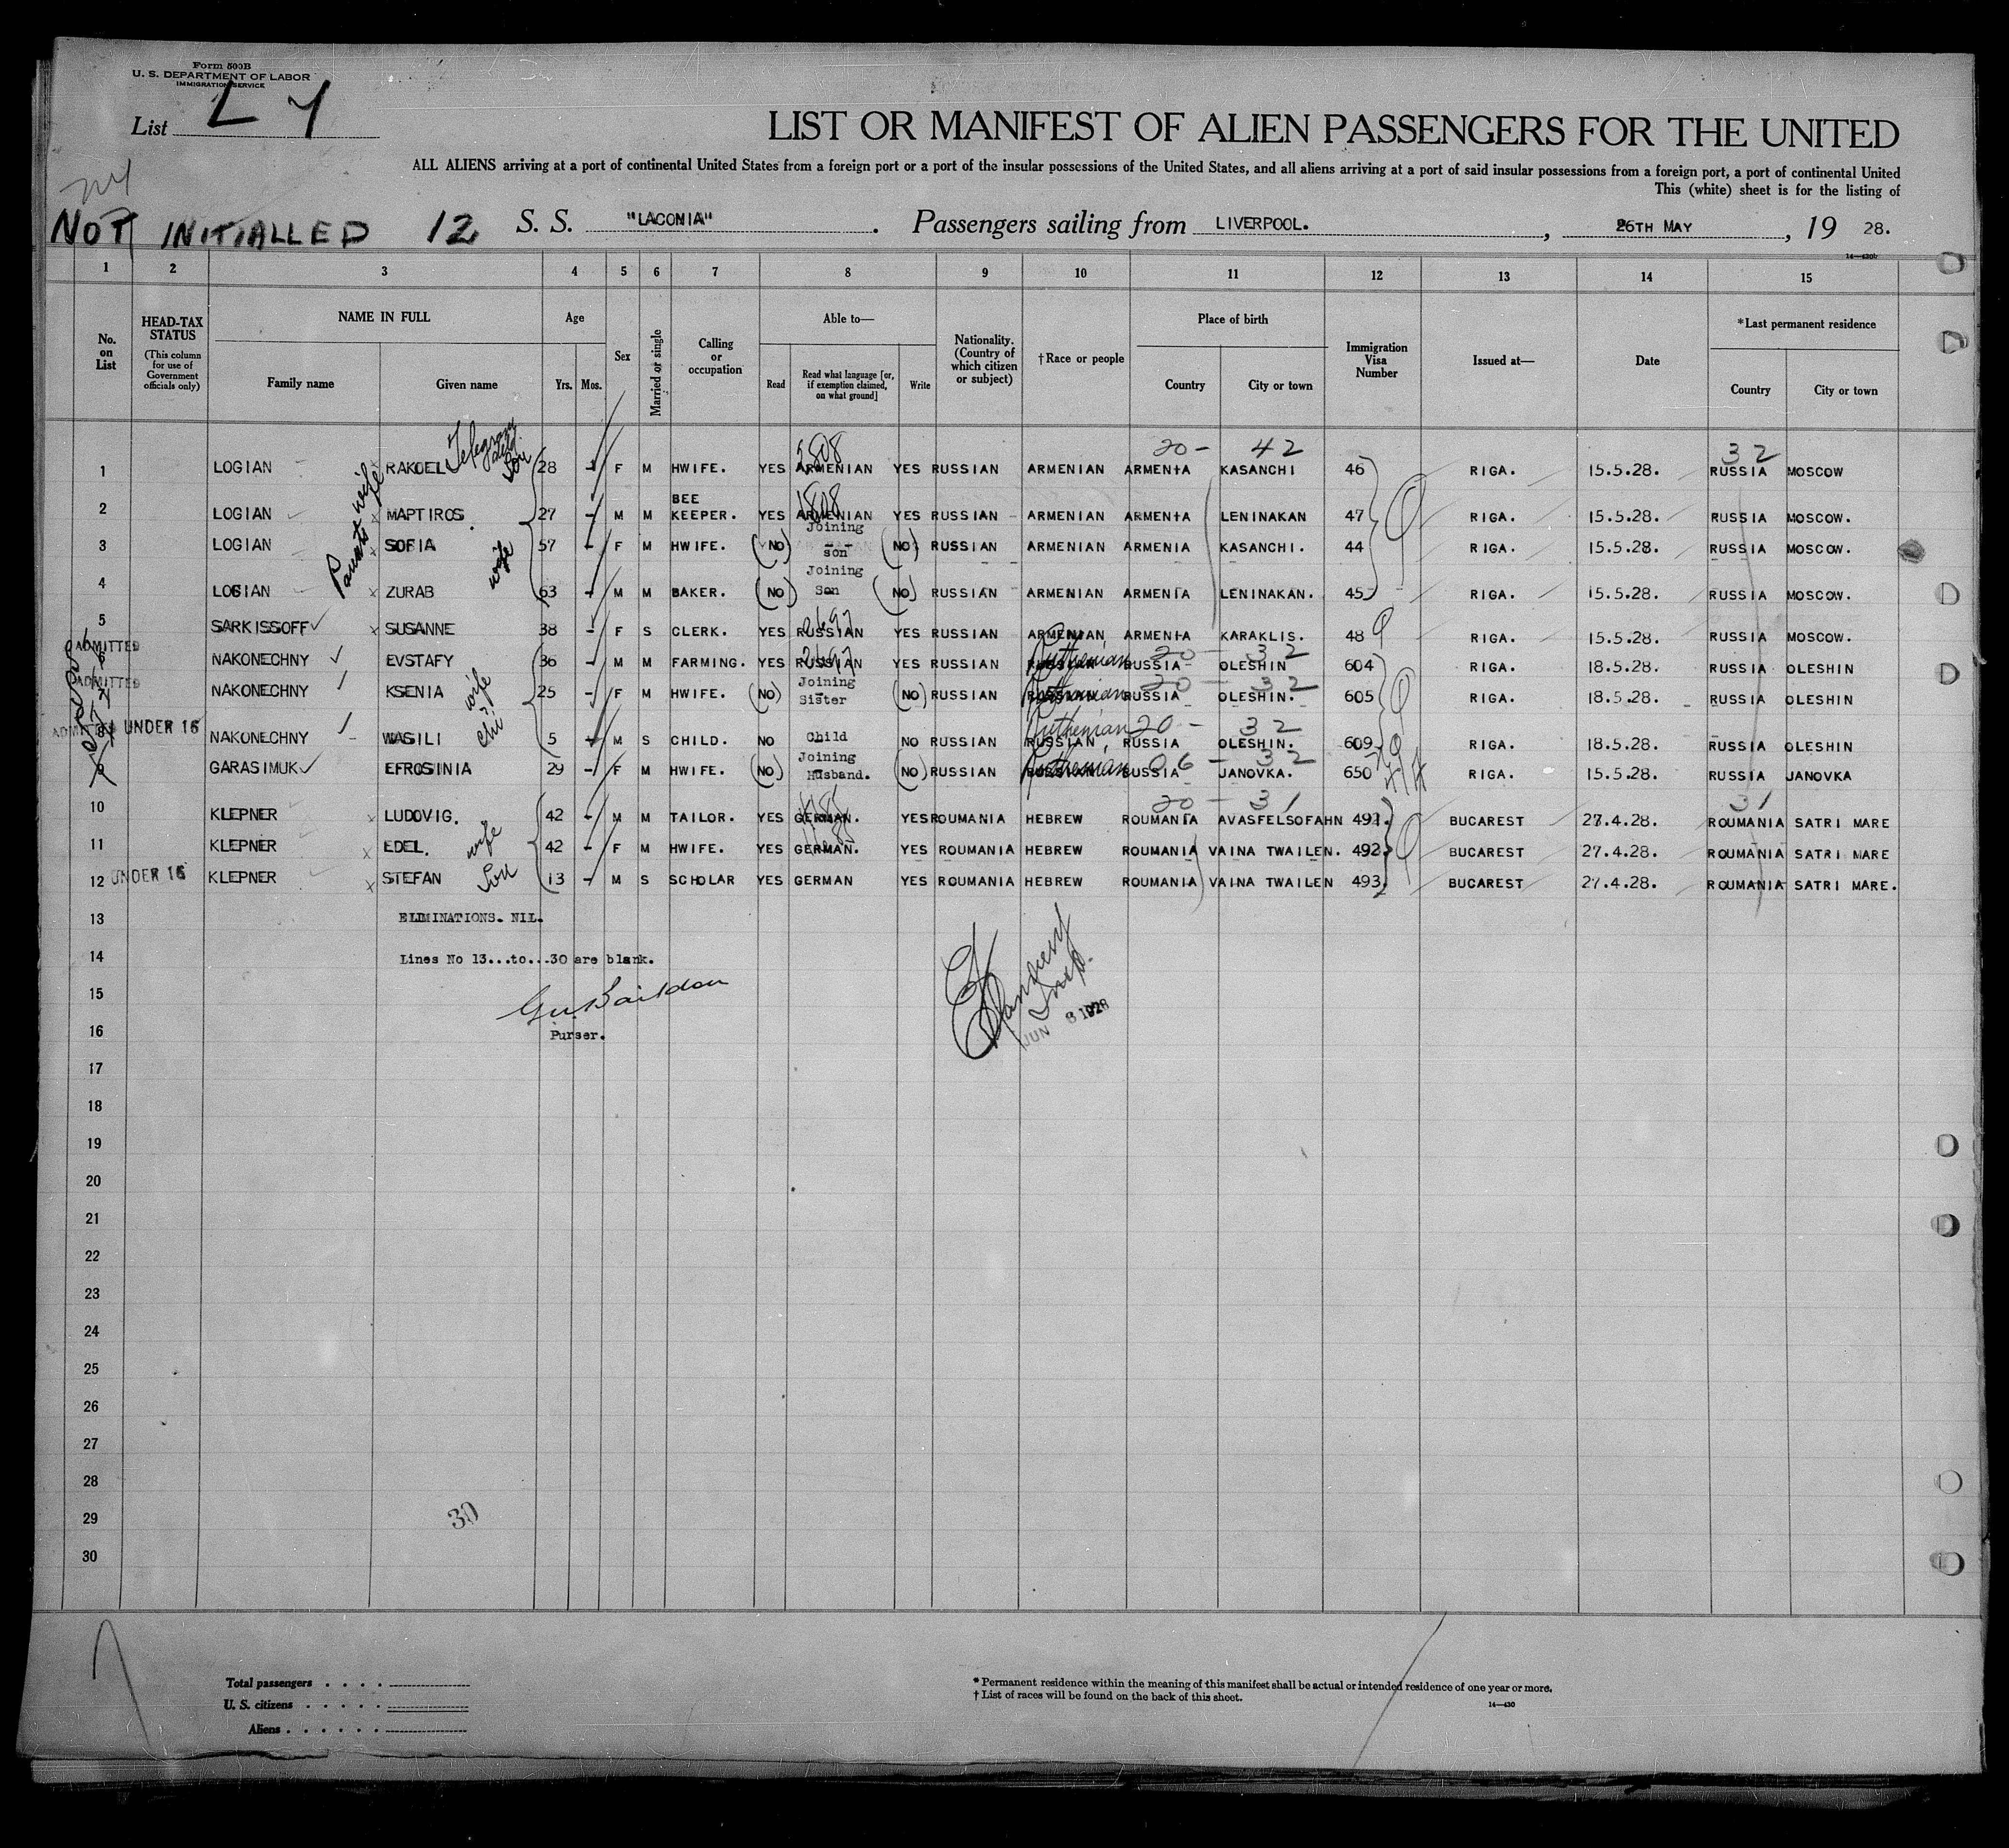 Form 500B
U. S. DEPARTMENT OF LABOR
IMMIGRATION SERVICE
List L 7
LIST OR MANIFEST OF ALIEN PASSENGERS FOR THE UNITED
ALL ALIENS arriving at a port of continental United States from a foreign port or a port of the insular possessions of the United States, and all aliens arriving at a port of said insular possessions from a foreign port, a port of continental United
This (white) sheet is for the listing of
NOT INITIALLED 12 S. S. "LACONIA" . Passengers sailing from LIVERPOOL. , 26TH MAY , 19 28.
14—430b
1 2 3 4 5 6 7 8 9 10 11 12 13 14 15
No. on List HEAD-TAX STATUS (This column for use of Government officials only) NAME IN FULL Family name Given name Age Yrs. Mos. Sex Married or single Calling or occupation Able to— Read Read what language [or, if exemption claimed, on what ground] Write Nationality. (Country of which citizen or subject) †Race or people Place of birth Country City or town Immigration Visa Number Issued at— Date *Last permanent residence Country City or town
Telegram
2808 20 - 42 32
1 LOGIAN RAKOEL 28 - F M HWIFE. YES ARMENIAN YES RUSSIAN ARMENIAN ARMENIA KASANCHI 46 RIGA. 15.5.28. RUSSIA MOSCOW
2 LOGIAN MAPTIROS. wife 27 - M M BEE KEEPER. YES ARMENIAN YES RUSSIAN - ARMENIAN ARMENIA LENINAKAN 47 RIGA. 15.5.28. RUSSIA MOSCOW.
3 LOGIAN SOFIA 57 - F M HWIFE. (NO) Joining son (NO) RUSSIAN ARMENIAN ARMENIA KASANCHI. 44 RIGA. 15.5.28. RUSSIA MOSCOW.
4 LOGIAN ZURAB wife 63 - M M BAKER. (NO) Joining Son (NO) RUSSIAN ARMENIAN ARMENIA LENINAKAN. 45 RIGA. 15.5.28. RUSSIA MOSCOW.
5 SARKISSOFF SUSANNE 38 - F S CLERK. YES RUSSIAN YES RUSSIAN ARMENIAN ARMENIA KARAKLIS. 48 RIGA. 15.5.28. RUSSIA MOSCOW.
ADMITTED 6 NAKONECHNY EVSTAFY 36 - M M FARMING. YES RUSSIAN YES RUSSIAN Ruthenian RUSSIA 20 - 32 OLESHIN 604 RIGA. 18.5.28. RUSSIA OLESHIN
ADMITTED 7 NAKONECHNY KSENIA wife 25 - F M HWIFE. (NO) Joining Sister (NO) RUSSIAN Ruthenian RUSSIA 20 - 32 OLESHIN. 605 RIGA. 18.5.28. RUSSIA OLESHIN
ADMITTED 8 UNDER 16 NAKONECHNY - WASILI 5 - M S CHILD. NO Child NO RUSSIAN RUSSIAN Ruthenian RUSSIA 20 - 32 OLESHIN. 609 RIGA. 18.5.28. RUSSIA OLESHIN
9 GARASIMUK EFROSINIA 29 - F M HWIFE. (NO) Joining Husband. (NO) RUSSIAN Ruthenian RUSSIA 06 - 32 JANOVKA. 650 RIGA. 15.5.28. RUSSIA JANOVKA
20 - 31 31
10 KLEPNER LUDOVIG. 42 - M M TAILOR. YES GERMAN. YES ROUMANIA HEBREW ROUMANIA AVASFELSOFAHN 491. BUCAREST 27.4.28. ROUMANIA SATRI MARE
11 KLEPNER EDEL. wife 42 - F M HWIFE. YES GERMAN. YES ROUMANIA HEBREW ROUMANIA VAINA TWAILEN. 492 BUCAREST 27.4.28. ROUMANIA SATRI MARE
12 UNDER 16 KLEPNER STEFAN Son 13 - M S SCHOLAR YES GERMAN YES ROUMANIA HEBREW ROUMANIA VAINA TWAILEN 493. BUCAREST 27.4.28. ROUMANIA SATRI MARE.
13 ELIMINATIONS. NIL.
14 Lines No 13...to...30 are blank.
15
16 Purser. JUN 3 1928
17
18
19
20
21
22
23
24
25
26
27
28
29 30
30
Total passengers . . . .
U. S. citizens . . . . .
Aliens . . . . . .
* Permanent residence within the meaning of this manifest shall be actual or intended residence of one year or more.
† List of races will be found on the back of this sheet.
14—430